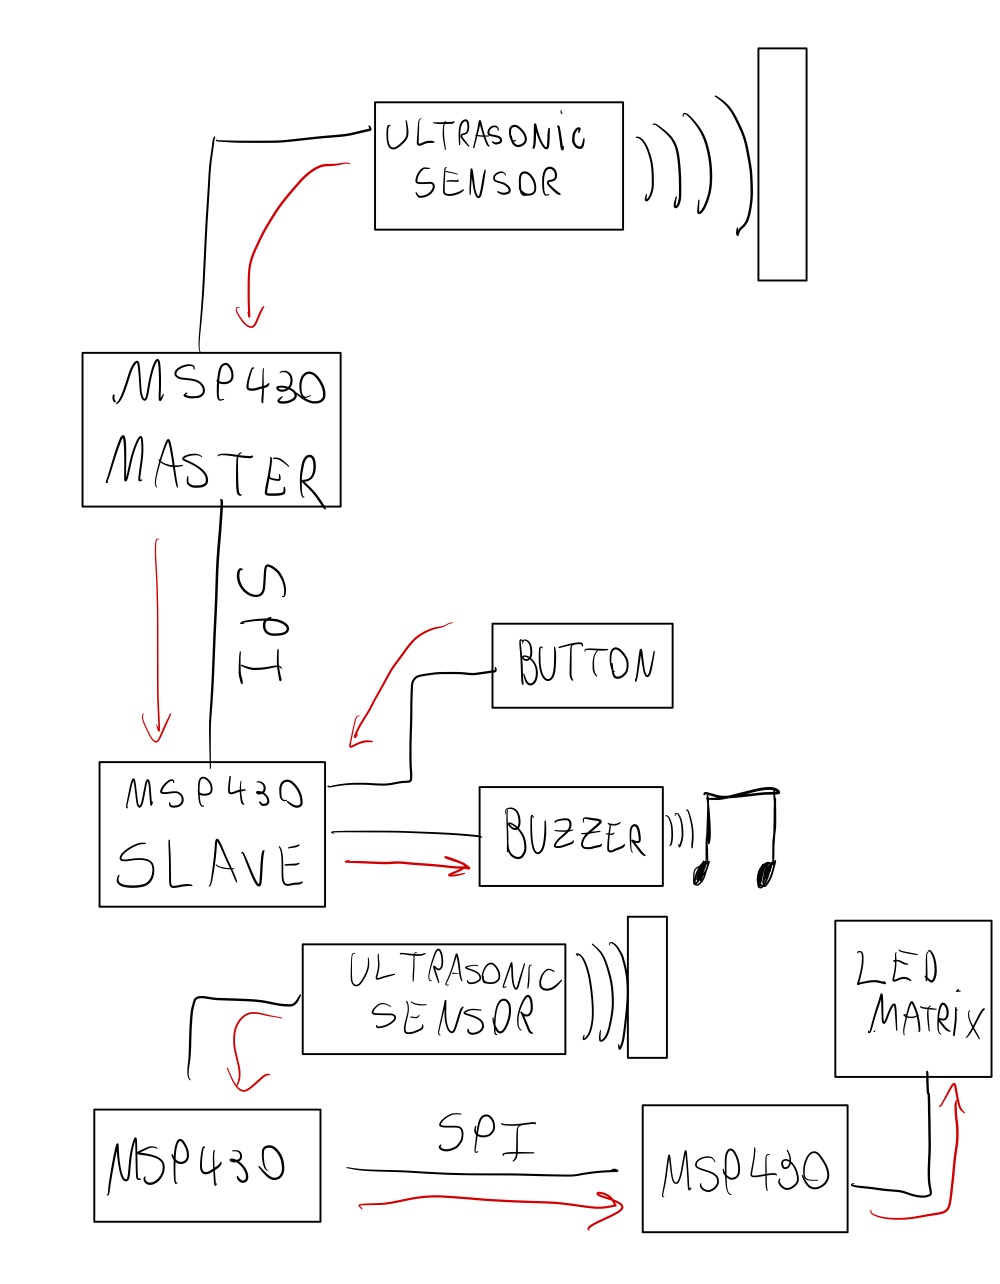 ULTRASONIC
SENSOR
MSP430
MASTER
SPI
BUTTON
MSP430
SLAVE
BUZZER
ULTRASONIC
SENSOR
LED
MATRIX
MSP430
SPI
MSP430